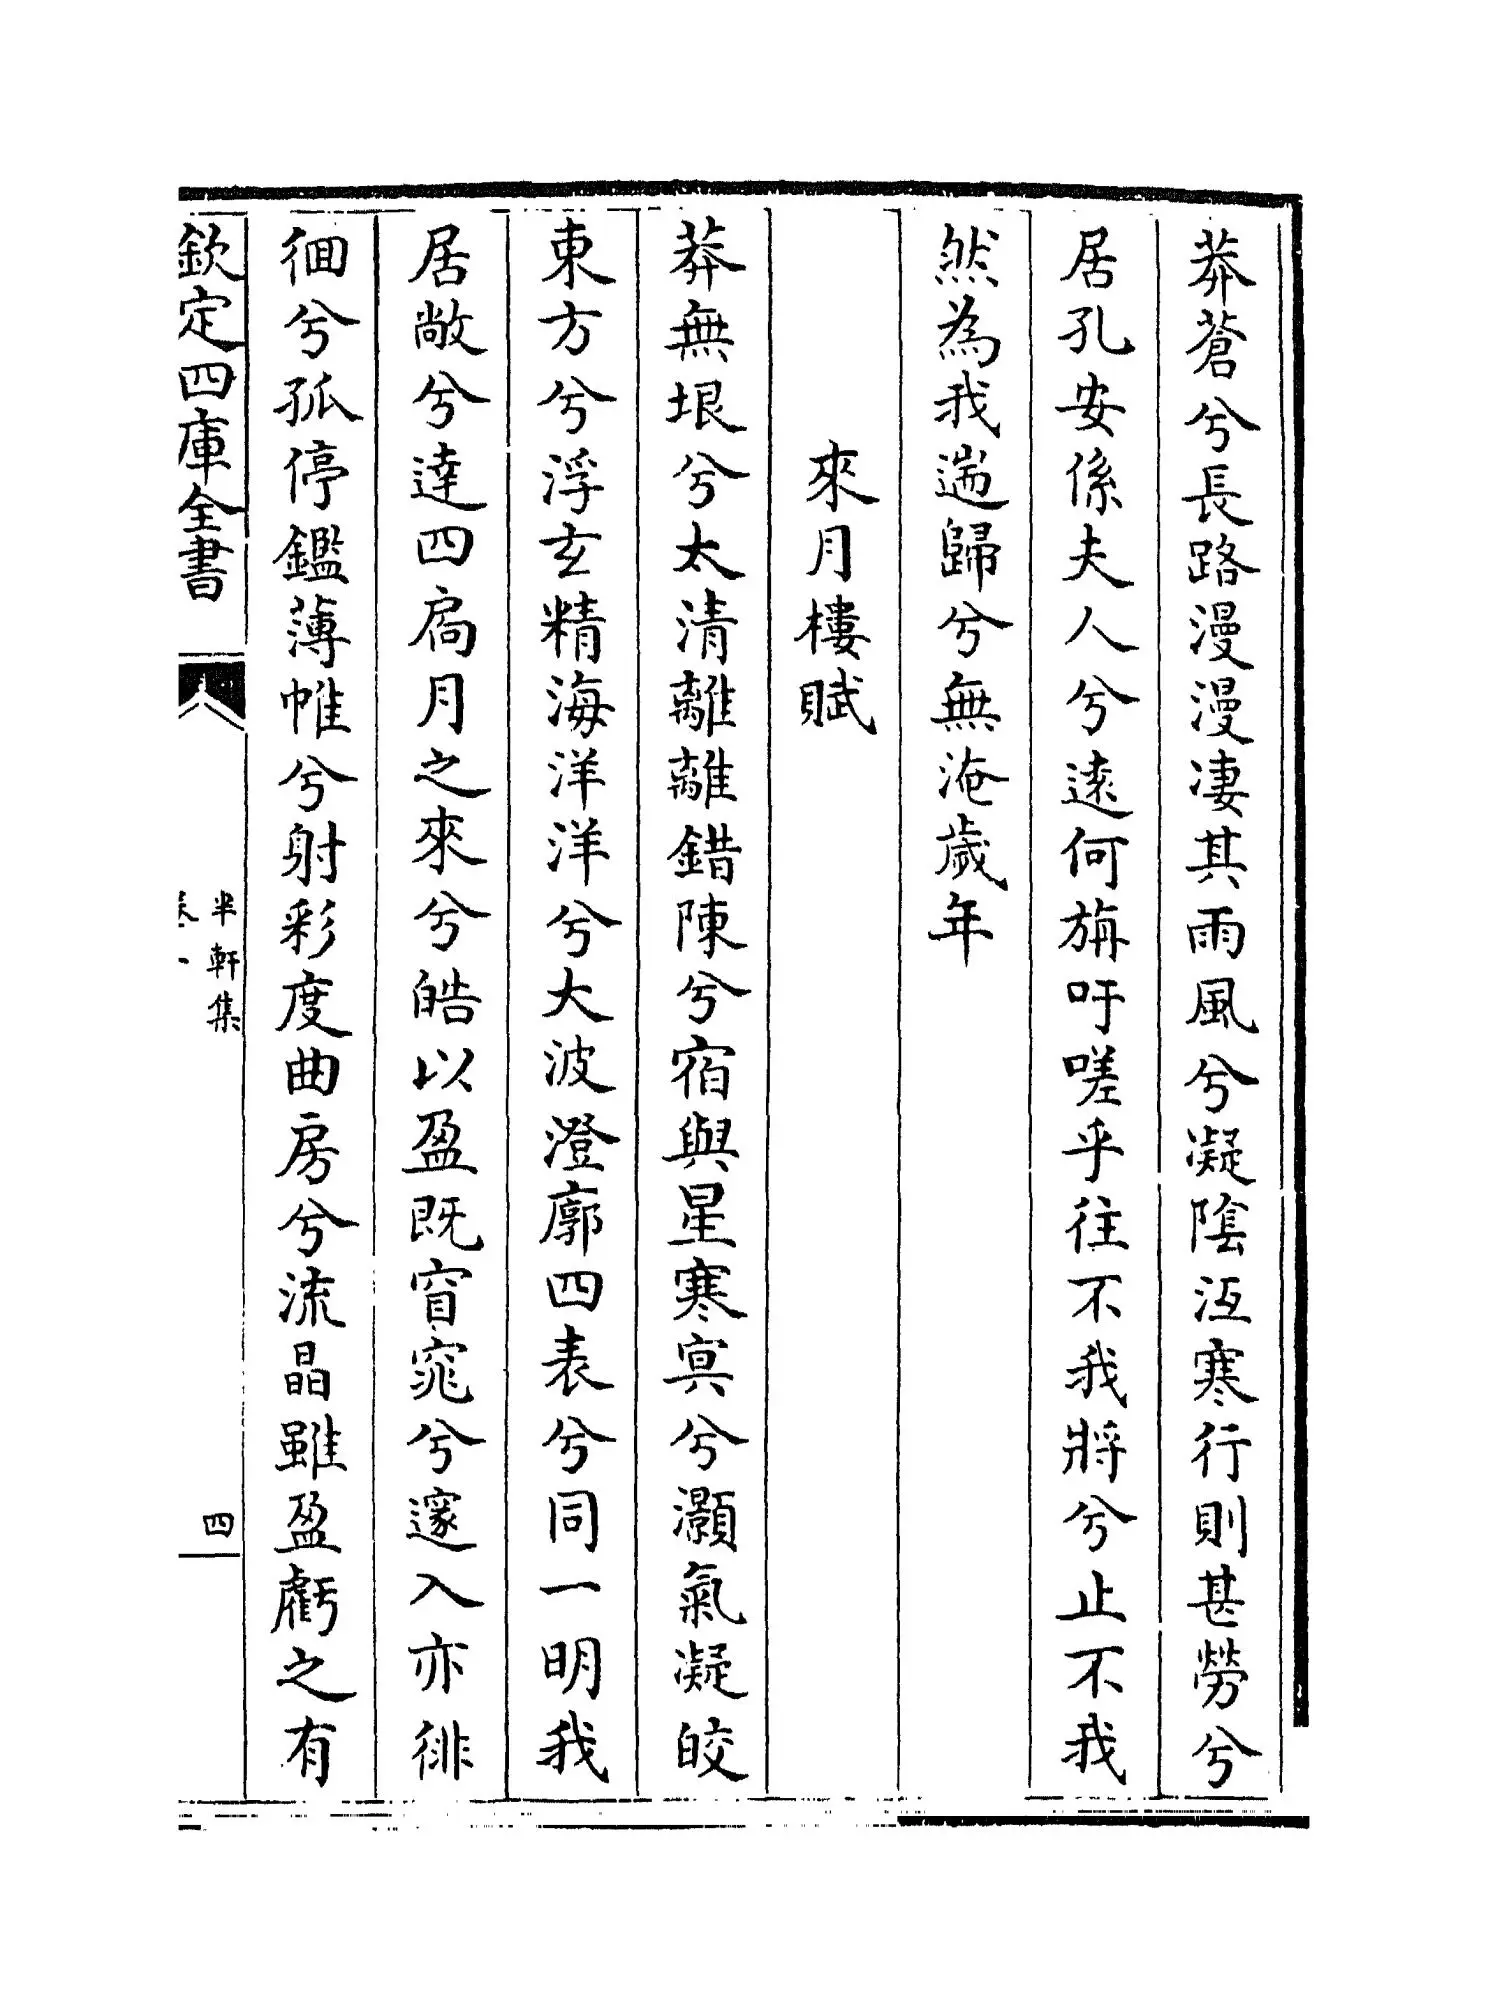 莽蒼兮長路漫漫凄其雨風兮凝陰沍寒行則甚勞兮
居孔安係夫人兮遠何旃吁嗟乎往不我將兮止不我
然為我遄歸兮無淹歲年
來月樓賦
莽無垠兮太清離離錯陳兮宿與星寒冥兮灝氣凝皎
東方兮浮玄精海洋洋兮大波澄廓四表兮同一明我
居敞兮達四扃月之來兮皓以盈既窅窕兮邃入亦徘
徊兮孤停鑑薄帷兮射彩度曲房兮流晶雖盈虧之有
欽定四庫全書
半軒集
卷一
四